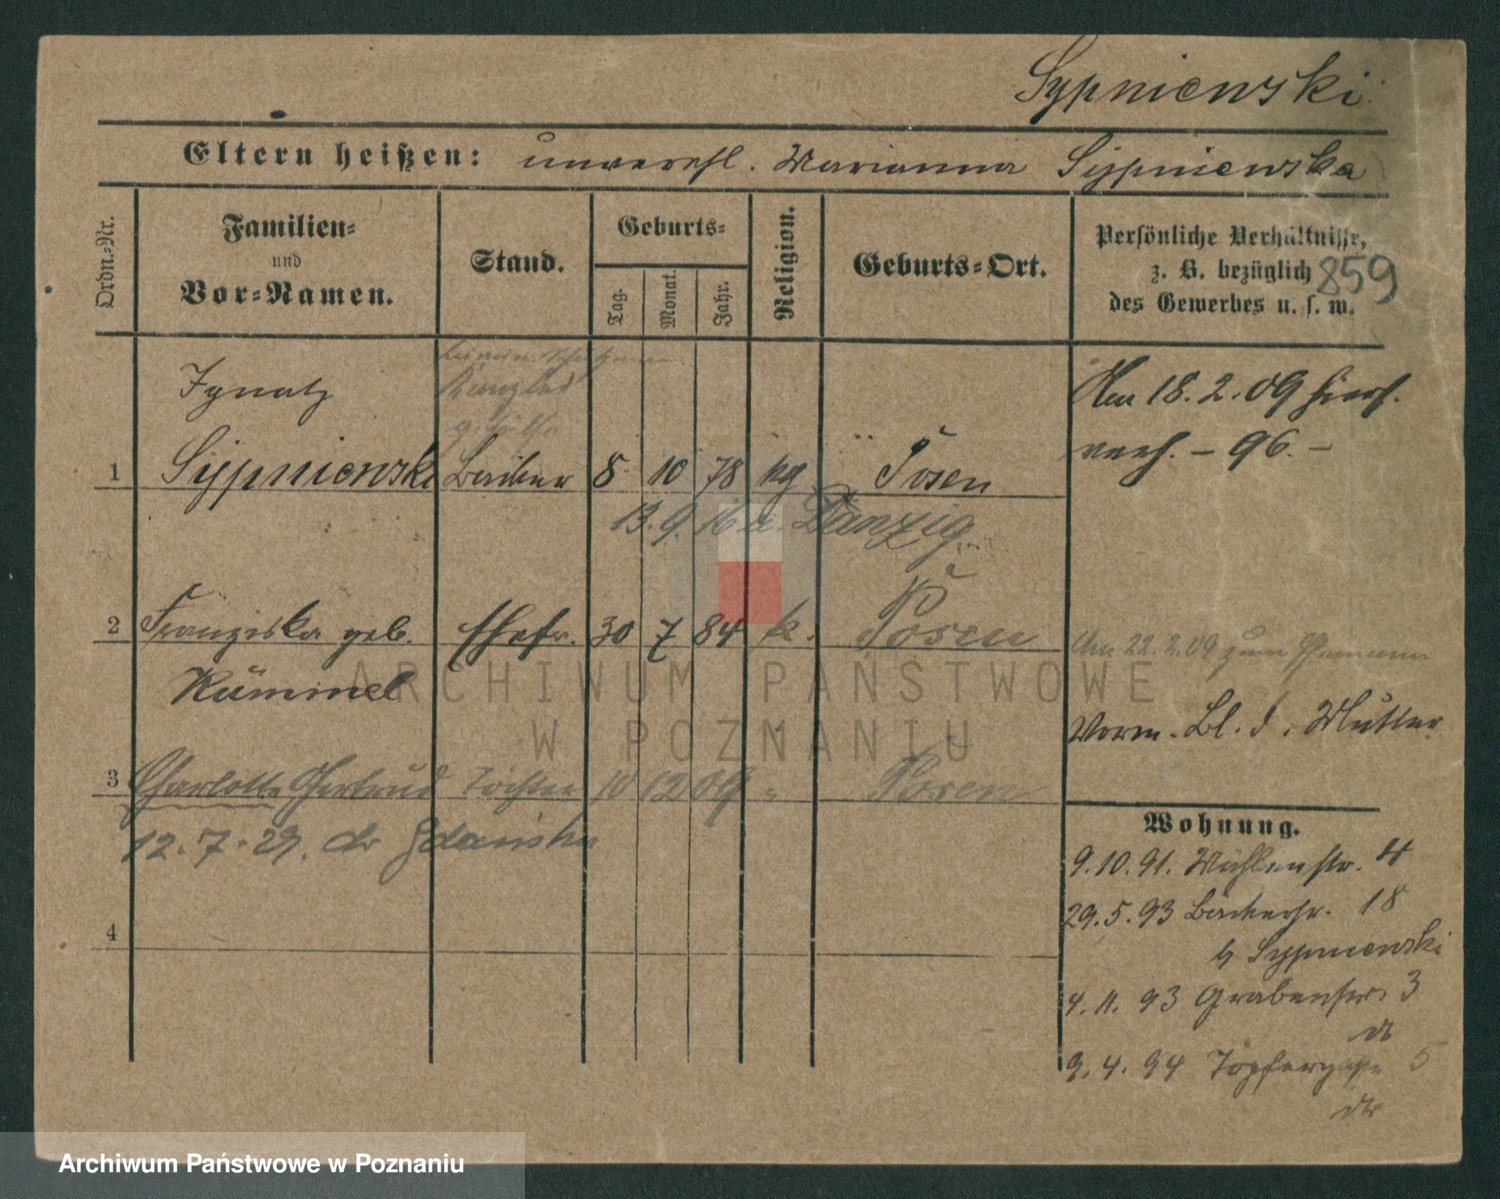 Sypniewski
Eltern heißen: unverehl. Marianna Sypniewska
Ordn.-Nr.
Familien-
und
Vor-Namen.
Stand.
Geburts-
Tag.
Monat.
Jahr.
Religion.
Geburts-Ort.
Persönliche Verhältnisse,
z. B. bezüglich
des Gewerbes u. s. w.
859
Ignatz
1 Sypniewski 8 10 78 kg Posen
Am 18. 2. 09 hier
verh. - 96. -
13. 9. 16 a. Danzig
2 Franziska geb. Ehefr. 30 7 84 k. Posen
Kümmel
Am 22. 2. 09 zum
Vorm. Bl. d. Mutter
3 Charlotte Gertrud Tochter 10 12 09 " Posen
12. 7. 29. do Gdańska
4
Wohnung.
9. 10. 91. Mühlenstr. 4
29. 5. 93 Bäckerstr. 18
b Sypniewski
4. 11. 93 Grabenstr. 3
9. 4. 94 Töpfergasse 5
ARCHIWUM PAŃSTWOWE
W POZNANIU
Archiwum Państwowe w Poznaniu